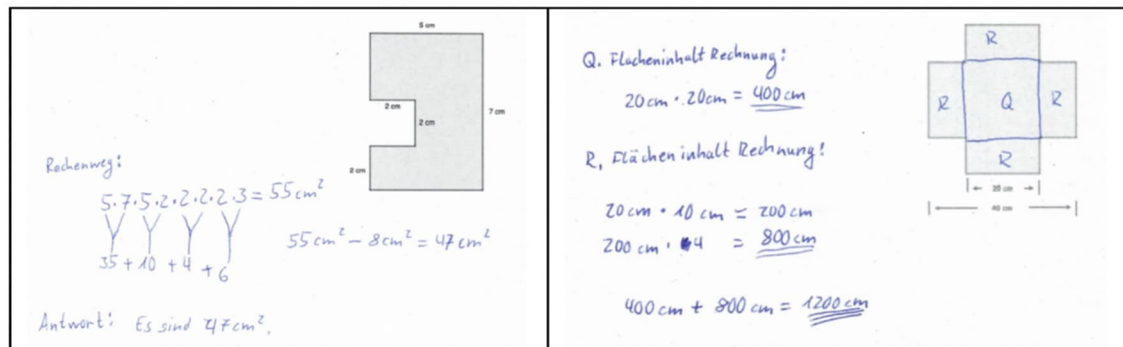 5 cm
2 cm
7 cm
2 cm
2 cm
Rechenweg:
5·7·5·2·2·2·2·3 = 55 cm²
35 + 10 + 4 + 6
55 cm² - 8 cm² = 47 cm²
Antwort: Es sind 47 cm².
Q. Flacheninhalt Rechnung:
20 cm · 20 cm = 400 cm
R. Flächeninhalt Rechnung!
20 cm · 10 cm = 200 cm
200 cm · 4 = 800 cm
400 cm + 800 cm = 1200 cm
R
R Q R
R
20 cm
40 cm